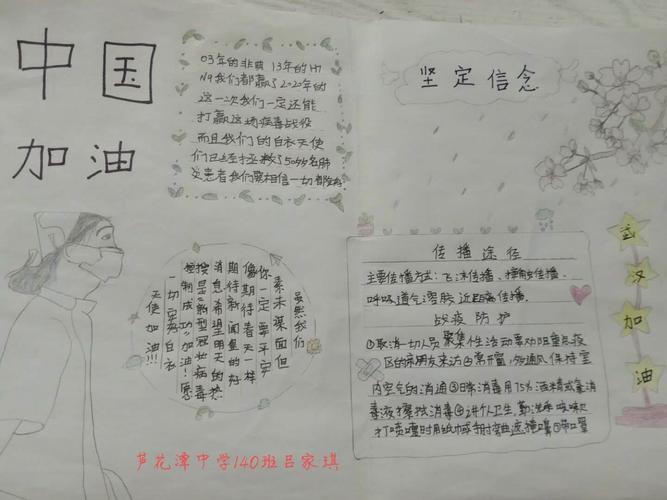 中国
加油
03年的非典 13年的H7
N9我们都赢了2020年的
这一次我们一定还能
打赢这场病毒战役
而且我们的白衣天使
们已经拯救了50多名肺
炎患者我们要相信一切都
坚定信念
虽然我们
素未谋面但
你一定要平安
像期待春天一样
期待新闻里的好
消息希望明天的热
搜是“新型冠状病毒
控制成功”加油!愿
一切安好白衣
天使加油!!!
传播途径
主要传播方式:飞沫传播、接触传播、
呼吸道气溶胶 近距离传播。
战疫防护
①取消一切人员聚集性活动要劝阻重点疫
区的亲朋友来访②常开窗,多通风保持室
内空气的消通③日常消毒用75%酒精或氯消
毒液擦拭消毒④讲个人卫生,勤洗手咳嗽
打喷嚏时用纸巾或手肘弯遮掩嘴⑤带口罩
武汉加油
芦花潭中学140班吕家琪